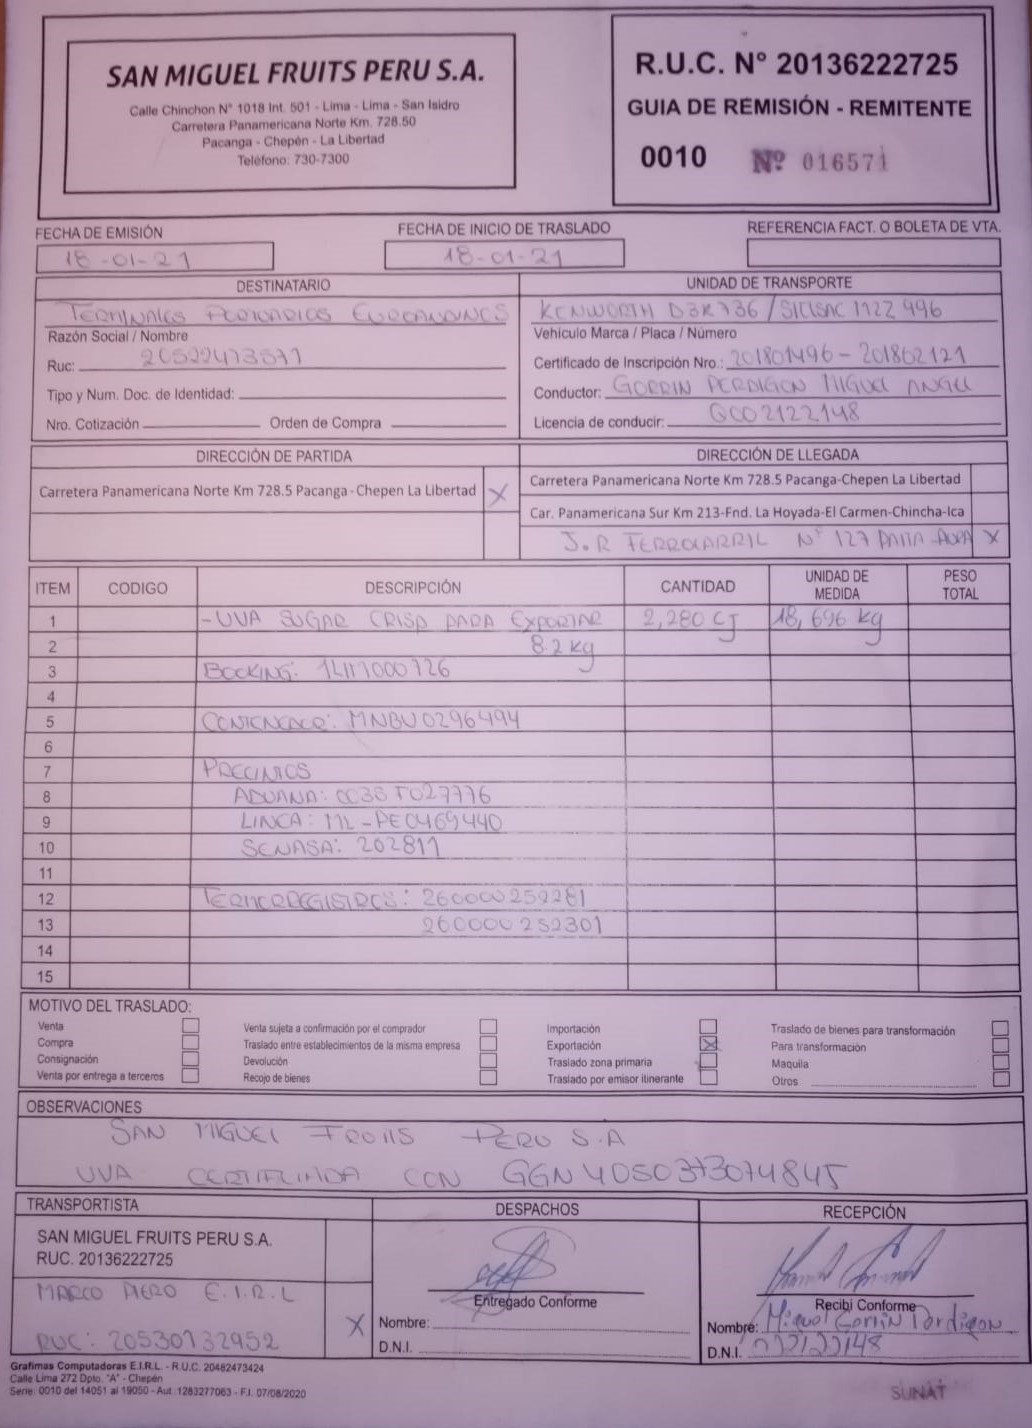 SAN MIGUEL FRUITS PERU S.A.
Calle Chinchon N° 1018 Int. 501 - Lima - Lima - San Isidro
Carretera Panamericana Norte Km. 728.50
Pacanga - Chepén - La Libertad
Teléfono: 730-7300
R.U.C. N° 20136222725
GUIA DE REMISIÓN - REMITENTE
0010 Nº 016571
FECHA DE EMISIÓN
18-01-21
FECHA DE INICIO DE TRASLADO
18-01-21
REFERENCIA FACT. O BOLETA DE VTA.
DESTINATARIO
TERMINALES PORTUARIOS EUROANDINOS
Razón Social / Nombre
Ruc: 20522473571
Tipo y Num. Doc. de Identidad:
Nro. Cotización Orden de Compra
UNIDAD DE TRANSPORTE
KENWORTH D3K736 /
Vehículo Marca / Placa / Número
Certificado de Inscripción Nro.: 201801496 - 201802121
Conductor: GORRIN PERDIGON MIGUEL ANGEL
Licencia de conducir: Q002122148
DIRECCIÓN DE PARTIDA
Carretera Panamericana Norte Km 728.5 Pacanga - Chepen La Libertad X
DIRECCIÓN DE LLEGADA
Carretera Panamericana Norte Km 728.5 Pacanga-Chepen La Libertad
Car. Panamericana Sur Km 213-Fnd. La Hoyada-El Carmen-Chincha-Ica
J.R FERROCARRIL N° 127 PAITA - X
ITEM CODIGO DESCRIPCIÓN CANTIDAD UNIDAD DE MEDIDA PESO TOTAL
1 - UVA SUGAR CRISP PARA EXPORTAR 2,280 CJ 18,696 kg
2 8.2 kg
3 BOOKING: 1LIM000726
4
5 CONTENEDOR: MNBU0296494
6
7 PRECINTOS
8 ADUANA: 0038T027776
9 LINEA: ML-PE0469440
10 SENASA: 202811
11
12 TERMORREGISTROS: 260000252281
13 260000252301
14
15
MOTIVO DEL TRASLADO:
Venta
Compra
Consignación
Venta por entrega a terceros
Venta sujeta a confirmación por el comprador
Traslado entre establecimientos de la misma empresa
Devolución
Recojo de bienes
Importación
Exportación X
Traslado zona primaria
Traslado por emisor itinerante
Traslado de bienes para transformación
Para transformación
Maquila
Otros
OBSERVACIONES
SAN MIGUEL FRUITS PERU S.A
UVA CERTIFICADA CON GGN 4050373074845
TRANSPORTISTA
SAN MIGUEL FRUITS PERU S.A.
RUC. 20136222725
MARCO PIERO E.I.R.L
RUC: 20530132952 X
DESPACHOS
Entregado Conforme
Nombre:
D.N.I.
RECEPCIÓN
Recibi Conforme
Nombre: Miguel Gorrin Perdigon
D.N.I. 002122148
Grafimas Computadoras E.I.R.L. - R.U.C. 20482473424
Calle Lima 272 Dpto. "A" - Chepén
Serie: 0010 del 14051 al 19050 - Aut. 1283277063 - F.I. 07/08/2020
SUNAT